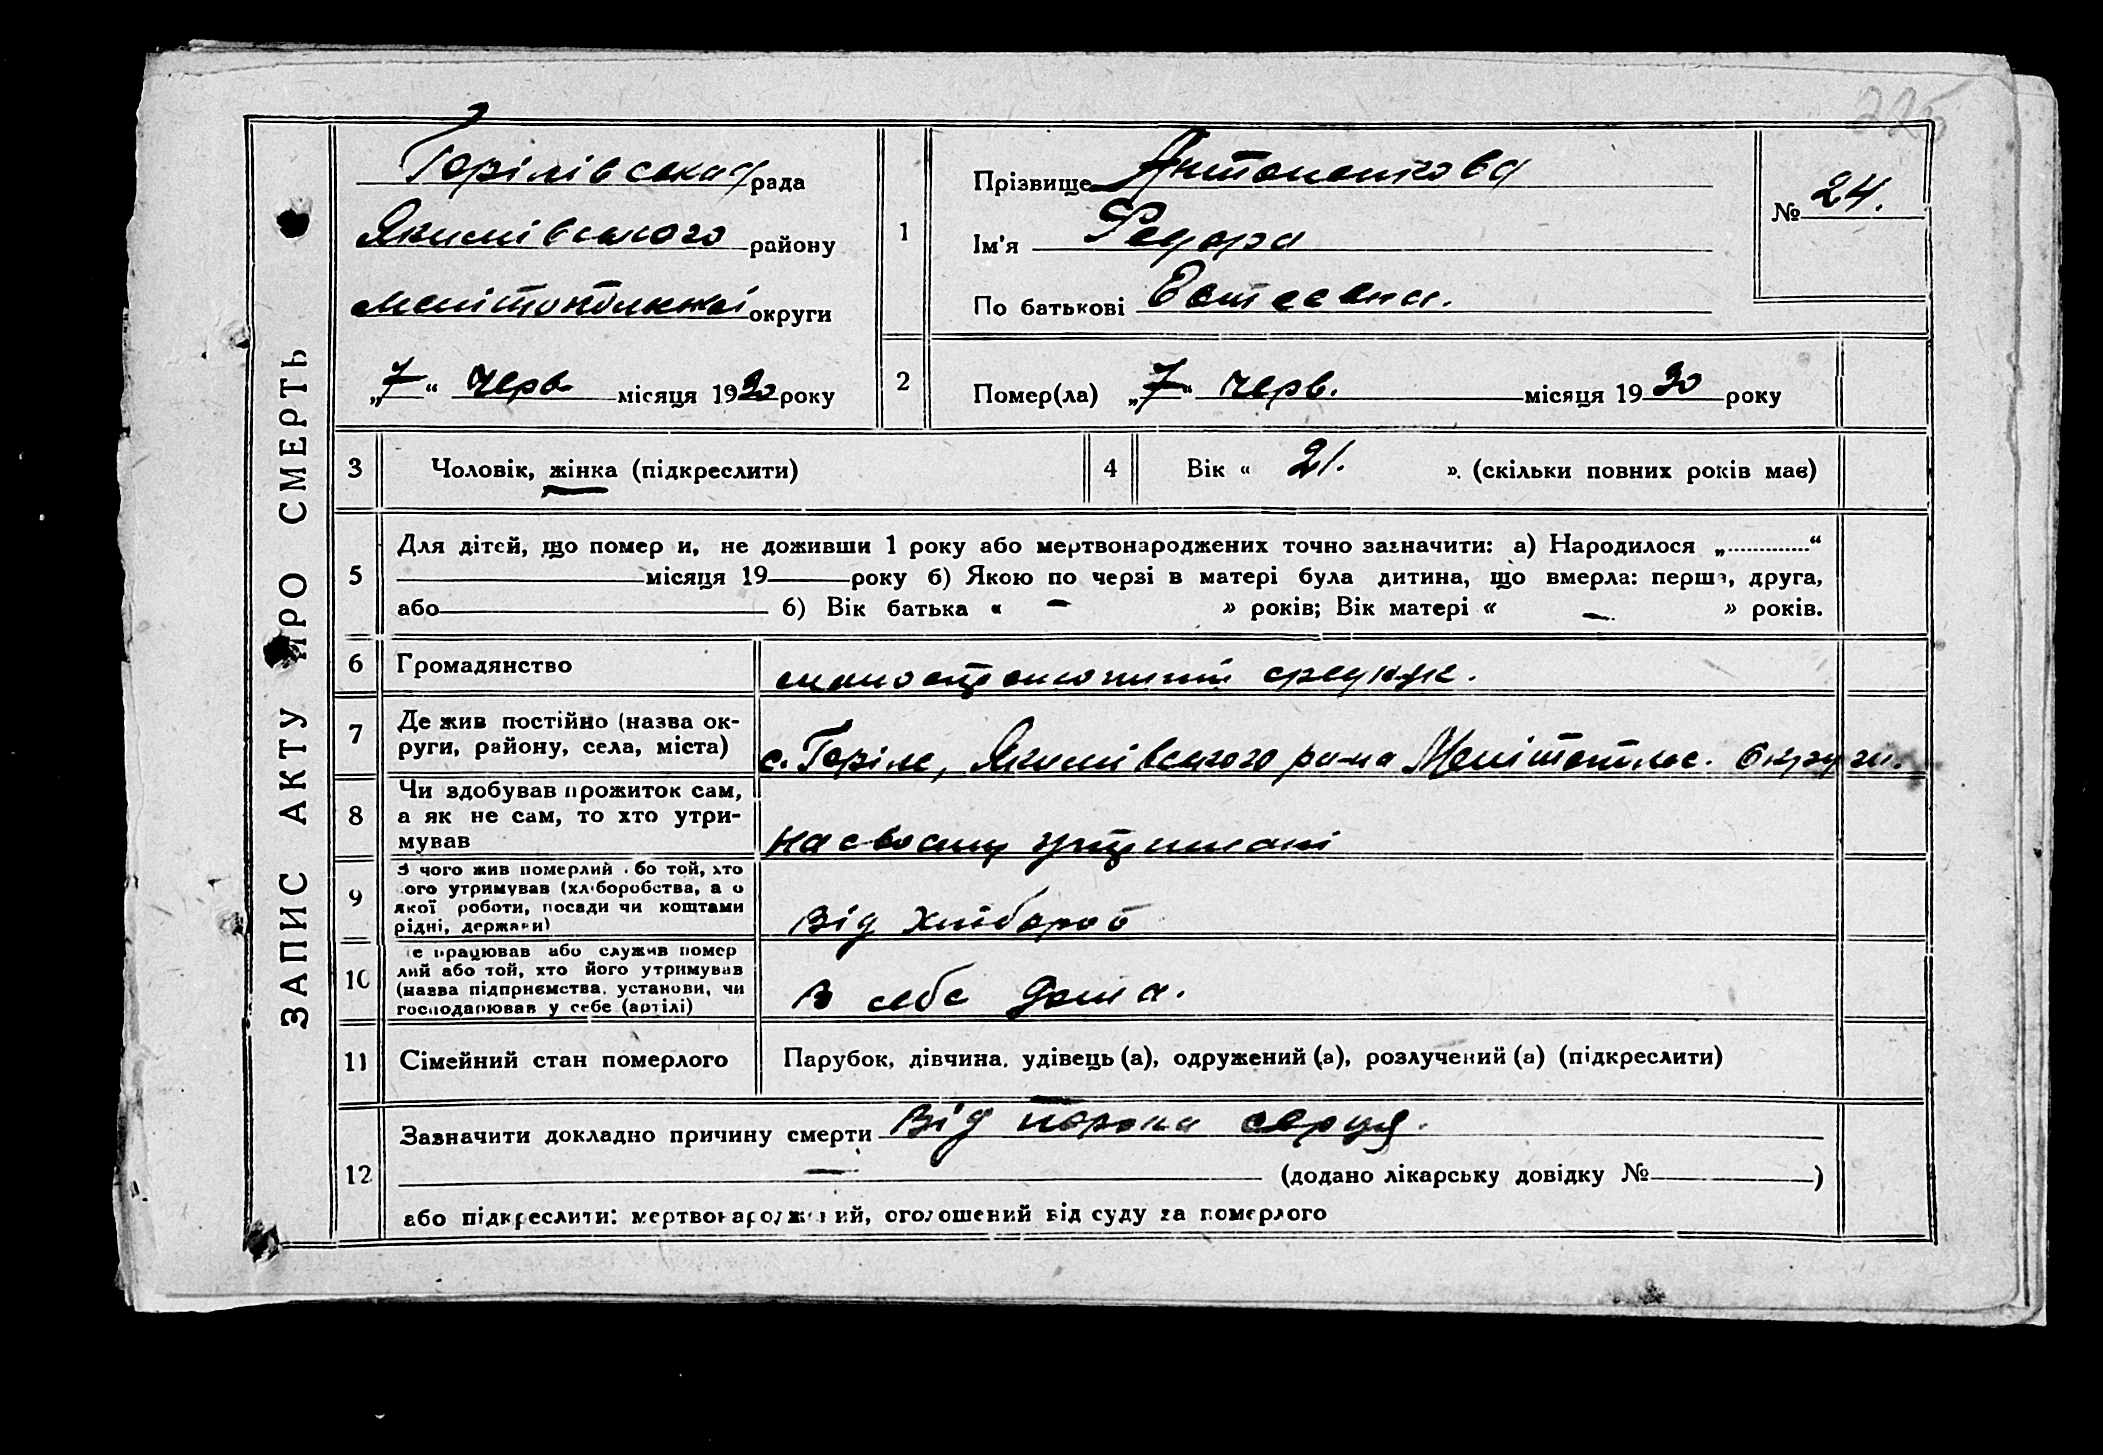 225
ЗАПИС АКТУ ПРО СМЕРТЬ
Горілівська рада
Якимівського району
Мелітопільської округи
„7“ черв. місяця 1930 року
1
Прізвище Антоненкова
Ім'я Федора
По батькові
№ 24.
2
Помер(ла) „7“ черв. місяця 1930 року
3 Чоловік, жінка (підкреслити)
4 Вік « 21. ». (скільки повних років має)
5
Для дітей, що помер и, не доживши 1 року або мертвонароджених точно зазначити: а) Народилося „............“
місяця 19 року б) Якою по черзі в матері була дитина, що вмерла: перша, друга,
або б) Вік батька « – » років; Вік матері « – » років.
6 Громадянство
7 Де жив постійно (назва ок-
руги, району, села, міста)
с. Горіле, Якимівського р-на Мелітопільс. округи.
8 Чи здобував прожиток сам,
а як не сам, то хто утри-
мував
на своєму утриманні
9 З чого жив померлий або той, хто
його утримував (хліборобства, а о
якої роботи, посади чи коштами
рідні, держави)
Від хлібороб
10 Де працював або служив помер
лий або той, хто його утримував
(назва підприємства, установи, чи
господарював у себе (артілі)
В себе дома.
11 Сімейний стан померлого Парубок, дівчина, удівець (а), одружений (а), розлучений (а) (підкреслити)
12
Зазначити докладно причину смерти Від порока серця.
– (додано лікарську довідку № )
або підкреслити: мертвонароджений, оголошений від суду за померлого